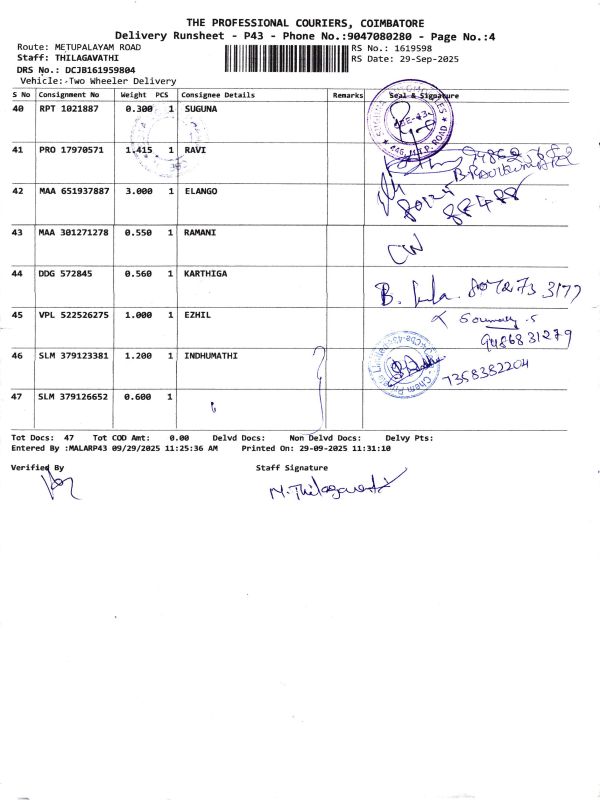 THE PROFESSIONAL COURIERS, COIMBATORE
Delivery Runsheet - P43 - Phone No.:9047080280 - Page No.:4
Route: METUPALAYAM ROAD RS No.: 1619598
Staff: THILAGAVATHI RS Date: 29-Sep-2025
DRS No.: DCJB161959804
Vehicle:-Two Wheeler Delivery
S No Consignment No Weight PCS Consignee Details Remarks Seal & Signature
40 RPT 1021887 0.300 1 SUGUNA
41 PRO 17970571 1.415 1 RAVI
42 MAA 651937887 3.000 1 ELANGO
80124
88488
43 MAA 301271278 0.550 1 RAMANI
44 DDG 572845 0.560 1 KARTHIGA
B. 807273 3177
45 VPL 522526275 1.000 1 EZHIL
9486831279
46 SLM 379123381 1.200 1 INDHUMATHI
7358382204
47 SLM 379126652 0.600 1
Tot Docs: 47 Tot COD Amt: 0.00 Delvd Docs: Non Delvd Docs: Delvy Pts:
Entered By :MALARP43 09/29/2025 11:25:36 AM Printed On: 29-09-2025 11:31:10
Verified By Staff Signature
M.Thilagavathi